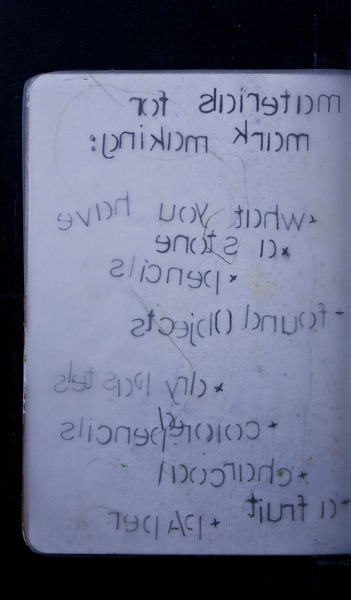 materials for
mark making:
*what you have
*a stone
*pencils
*found Objects
*dry pastels
*colored pencils
*charcoal
*a fruit
*pAper